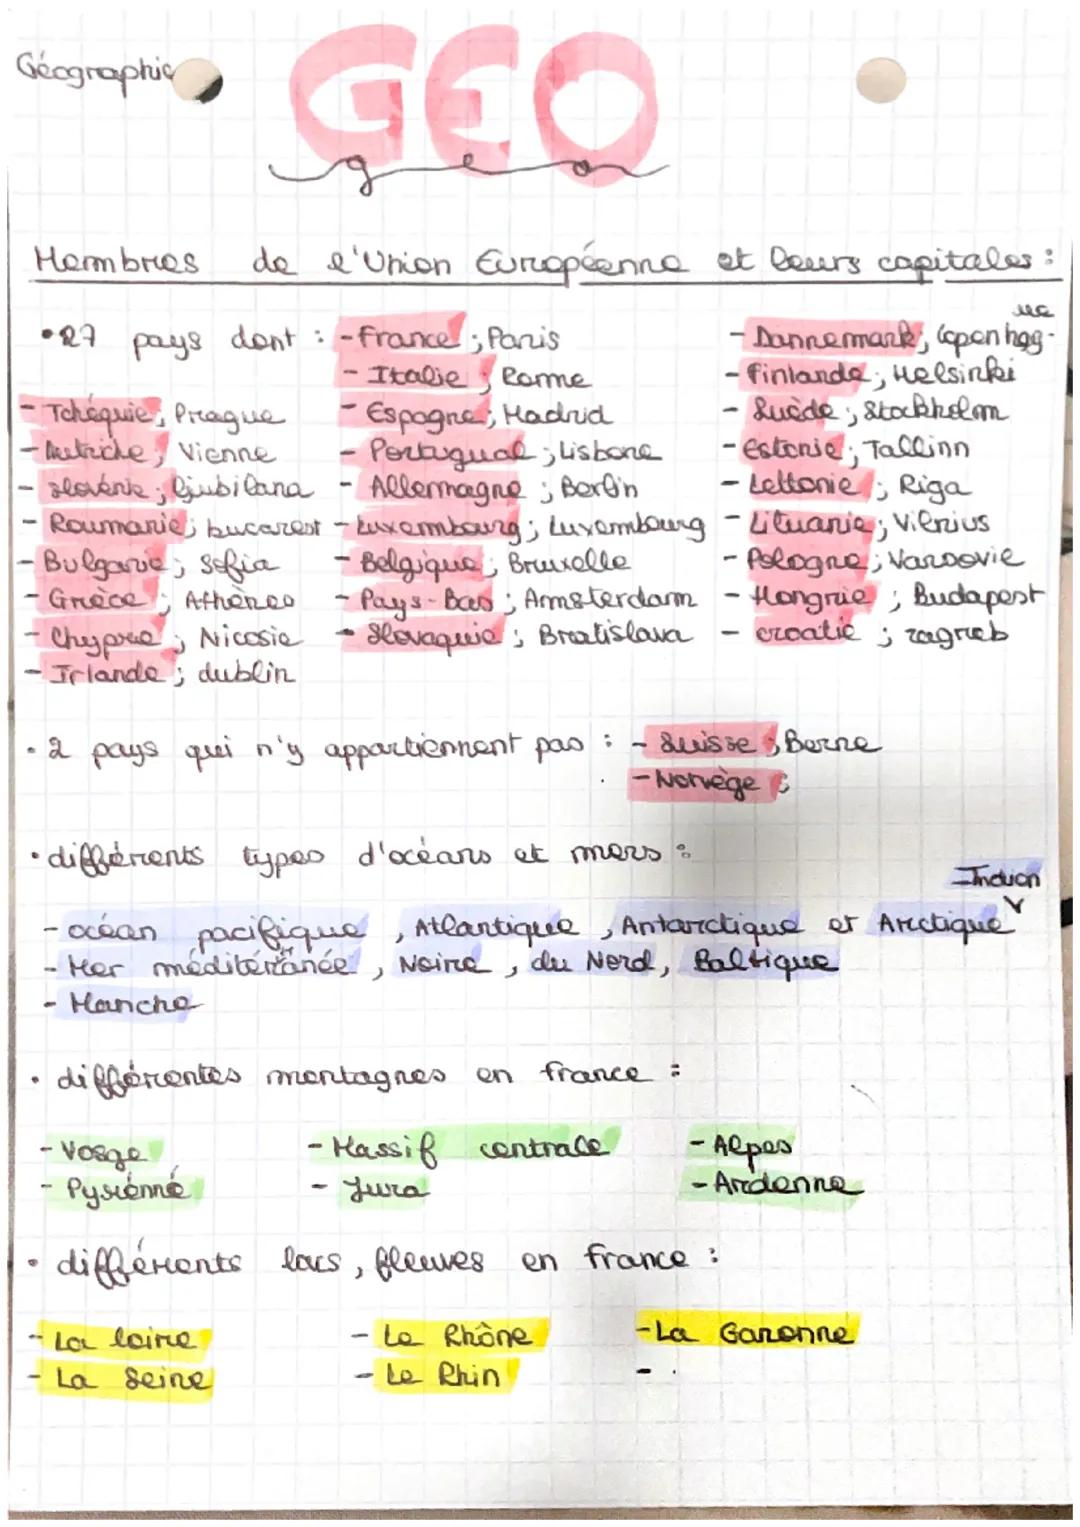 Géographie
GEO
geo
Membres de l'Union Européenne et leurs capitales :
•27 pays dont :
- France ; Paris
- Italie ; Rome
- Espagne ; Madrid
- Portugual ; Lisbone
- Allemagne ; Berlin
- Luxembourg ; Luxembourg
- Belgique ; Bruxelle
- Pays-Bas ; Amsterdam
- Slovaquie ; Bratislava
- Dannemark ; Copenhag-
ue
- Finlande ; Helsinki
- Suède ; Stockholm
- estonie ; Tallinn
- Lettonie ; Riga
- Lituanie ; Vilnius
- Pologne ; Varsovie
- Hongrie ; Budapest
- croatie ; zagreb
- Tchéquie ; Prague
- Autriche ; Vienne
- slovénie ; ljubilana
- Roumanie ; bucarest
- Bulgarie ; Sofia
- Grèce ; Athènes
- Chypre ; Nicosie
- Irlande ; dublin
• 2 pays qui n'y appartiennent pas :
- Suisse ; Berne
- Norvège ;
• différents types d'océans et mers :
Indien
- océan pacifique , Atlantique , Antarctique et Arctique
- Mer méditérranée , Noire , du Nord, Baltique
- Manche
• différentes montagnes en france :
- Vosge
- Pyrénné
- Massif centrale
- Jura
- Alpes
- Ardenne
• différents lacs , fleuves en france :
- La loire
- La Seine
- Le Rhône
- Le Rhin
- La Garonne
- .